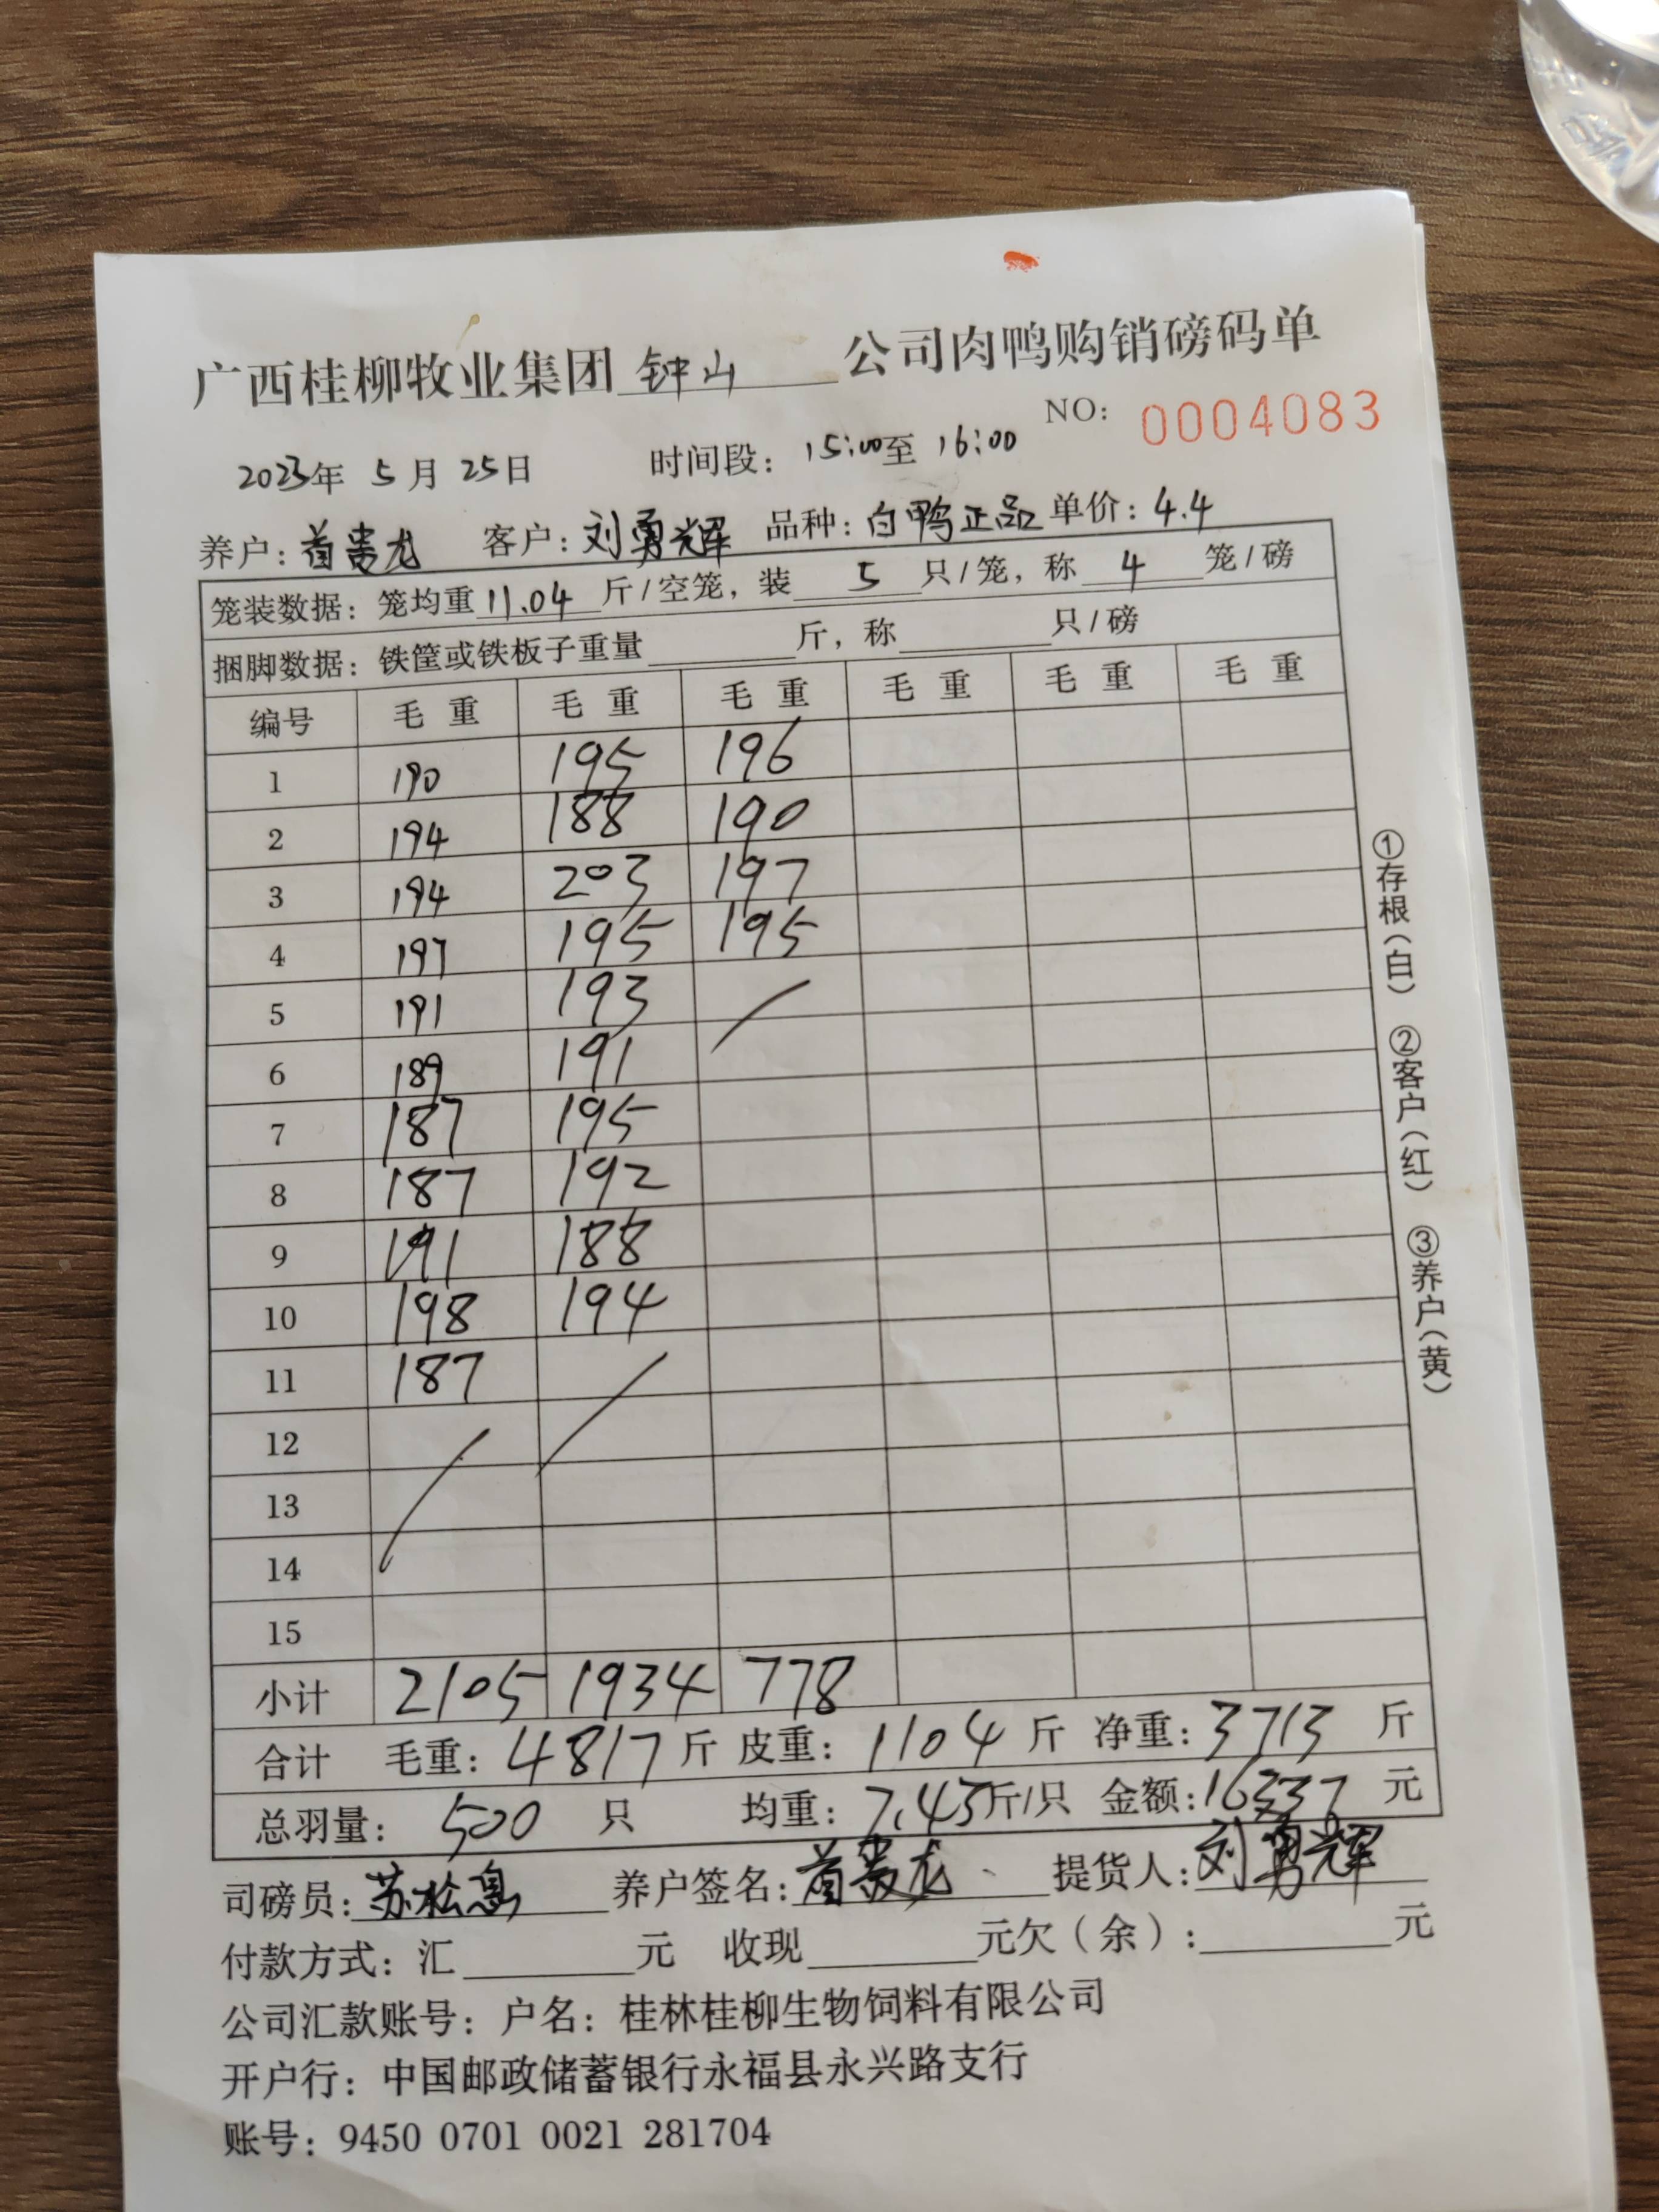 广西桂柳牧业集团 钟山 公司肉鸭购销磅码单
NO: 0004083
2023年 5月 25日 时间段: 15:00至 16:00
养户: 首贵龙 客户: 刘勇辉 品种: 白鸭正品 单价: 4.4
笼装数据: 笼均重 11.04 斤/空笼, 装 5 只/笼, 称 4 笼/磅
捆脚数据: 铁筐或铁板子重量 斤, 称 只/磅
编号 毛重 毛重 毛重 毛重 毛重 毛重
1 190 195 196
2 194 188 190
3 194 203 197
4 197 195 195
5 191 193
6 189 191
7 187 195
8 187 192
9 191 188
10 198 194
11 187
12
13
14
15
小计 2105 1934 778
合计 毛重: 4817斤 皮重: 1104斤 净重: 3713斤
总羽量: 500 只 均重: 7.43斤/只 金额: 16337元
司磅员: 苏松 养户签名: 首贵龙 提货人: 刘勇辉
付款方式: 汇 元 收现 元欠(余): 元
公司汇款账号: 户名: 桂林桂柳生物饲料有限公司
开户行: 中国邮政储蓄银行永福县永兴路支行
账号: 9450 0701 0021 281704
①存根(白) ②客户(红) ③养户(黄)